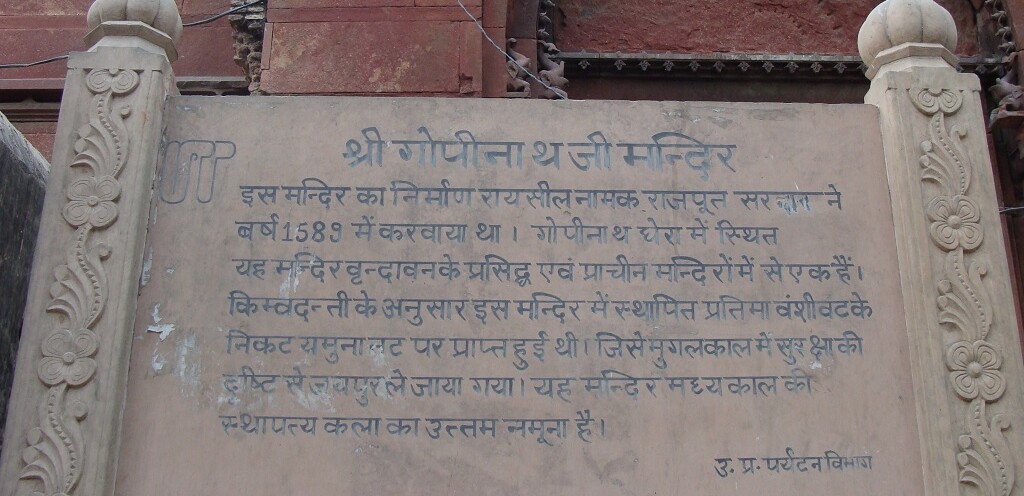 श्री गोपीनाथ जी मन्दिर
इस मन्दिर का निर्माण रायसील नामक राजपूत सरदार ने
वर्ष 1589 में करवाया था। गोपीनाथ घेरा में स्थित
यह मन्दिर वृन्दावन के प्रसिद्ध एवं प्राचीन मन्दिरों में से एक हैं।
किम्वदन्ती के अनुसार इस मन्दिर में स्थापित प्रतिमा वंशीवट के
निकट यमुना तट पर प्राप्त हुई थी। जिसे मुगलकाल में सुरक्षा की
दृष्टि से जयपुर ले जाया गया। यह मन्दिर मध्य काल की
स्थापत्य कला का उत्तम नमूना है।
उ. प्र. पर्यटन विभाग